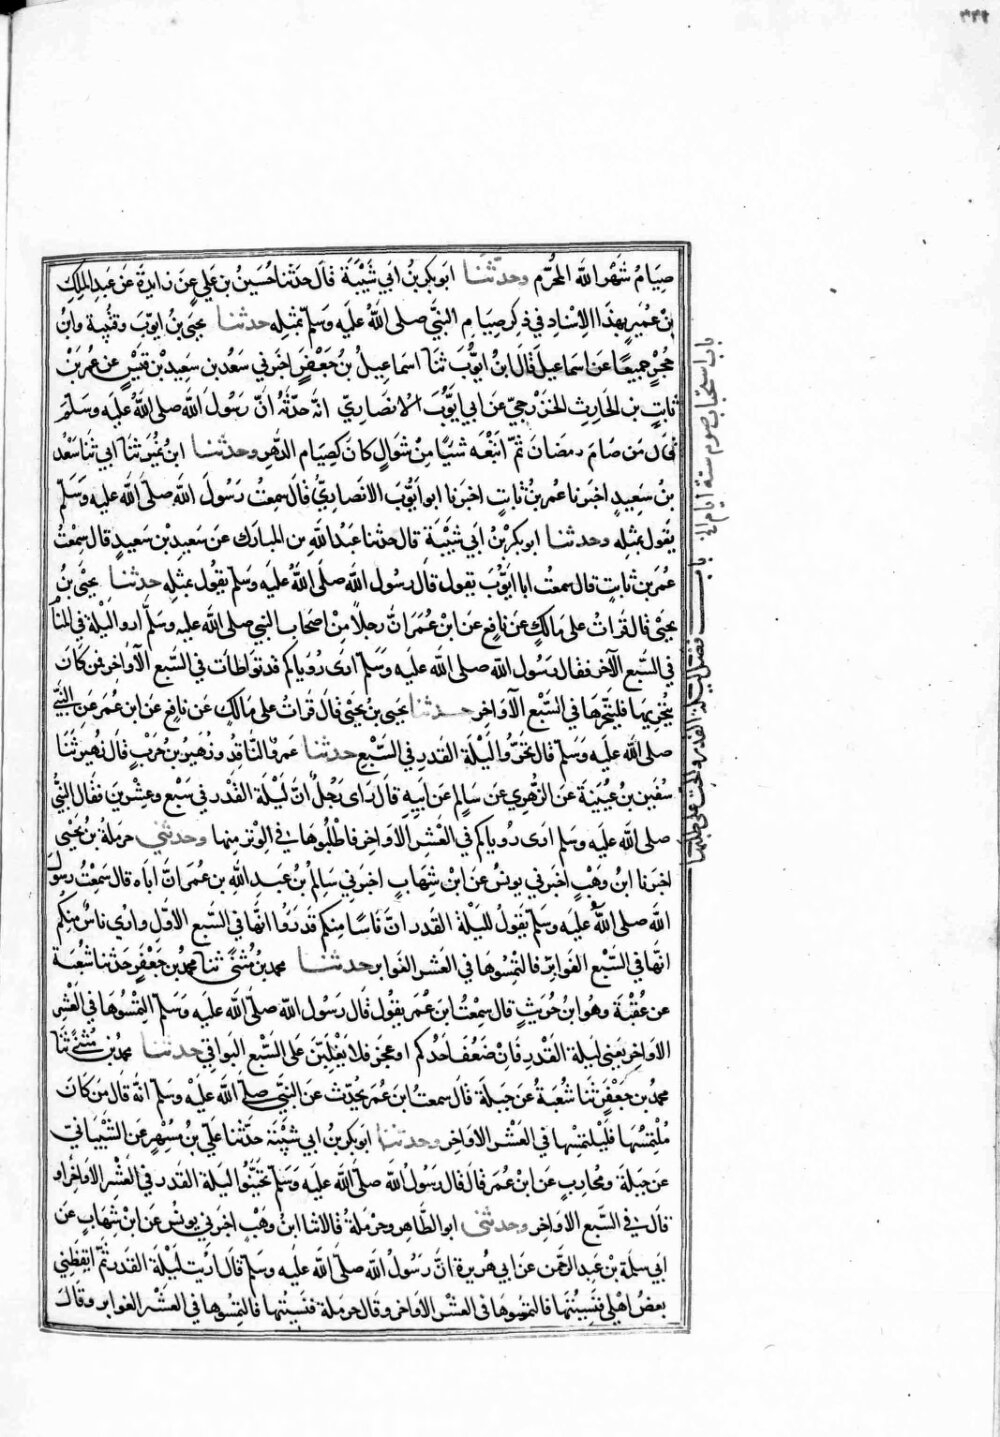 صيام شهر الله المحرم وحدثنا ابو بكر بن ابي شيبة قال حدثنا حسين بن علي عن زايدة عن عبد الملك
بن عمير بهذا الاسناد في ذكر صيام النبي صلى الله عليه وسلم بمثله حدثنا يحيى بن ايوب وقتيبة وابن
حجر جميعًا عن اسماعيل قال ابن ايوب ثنا اسماعيل بن جعفر اخبرني سعد بن سعيد بن قيس عن عمر بن
ثابت بن الحارث الخزرجي عن ابي ايوب الانصاري انه حدثه ان رسول الله صلى الله عليه وسلم
قال من صام رمضان ثم اتبعه شيًا من شوال كان كصيام الدهر وحدثنا ابن نمير ثنا ابي ثنا سعد
بن سعيد اخبرنا عمر بن ثابت اخبرنا ابو ايوب الانصاري قال سمعت رسول الله صلى الله عليه وسلم
يقول بمثله وحدثنا ابو بكر بن ابي شيبة قال حدثنا عبد الله بن المبارك عن سعيد بن سعيد قال سمعت
عمر بن ثابت قال سمعت ابا ايوب يقول قال رسول الله صلى الله عليه وسلم يقول بمثله حدثنا يحيى بن
يحيى قال قرات على مالك عن نافع عن ابن عمر ان رجلا من اصحاب النبي صلى الله عليه وسلم اروا ليلة في المنا
في السبع الآخر فقال رسول الله صلى الله عليه وسلم ارى روياكم قد تواطات في السبع الآواخر فمن كان
يتحريها فليتحرها في السبع الآواخر حدثنا يحيى بن يحيى قال قرات على مالك عن نافع عن ابن عمر عن النبي
صلى الله عليه وسلم قال تحروا ليلة القدر في السبع حدثنا عمرو الناقد وزهير بن حرب قال زهير ثنا
سفين بن عيينة عن الزهري عن سالم عن ابيه قال راى رجل ان ليلة القدر في سبع وعشرين فقال النبي
صلى الله عليه وسلم ارى روياكم في العشر الاواخر فاطلبوها في الوتر منها وحدثني حرملة بن يحيى
اخبرنا ابن وهب اخبرني يونس عن ابن شهاب اخبرني سالم بن عبد الله بن عمر ان اباه قال سمعت رسول
الله صلى الله عليه وسلم يقول لليلة القدر ان ناسا منكم قد رَوا انها في السبع الاول واري ناس منكم
انها في السبع الغوابر فالتمسوها في العشر الغوابر حدثنا محمد بن مثنى ثنا محمد بن جعفر حدثنا شعبة
عن عقبة وهو ابن حريث قال سمعت ابن عمر يقول قال رسول الله صلى الله عليه وسلم التمسوها في العشر
الاواخر يعني ليلة القدر فان ضعف احدكم او عجز فلا يغلبن على السبع البواقي حدثنا محمد بن مثنى ثنا
محمد بن جعفر ثنا شعبة عن جبلة قال سمعت ابن عمر يحدث عن النبي صلى الله عليه وسلم انه قال من كان
ملتمسها فليلتمسها في العشر الاواخر وحدثنا ابو بكر بن ابي شيبة حدثنا علي بن مسهر عن الشيباني
عن جبلة ومحارب عن ابن عمر قال قال رسول الله صلى الله عليه وسلم تحينوا ليلة القدر في العشر الاواخر او
قال في السبع الاواخر وحدثني ابو الطاهر وحرملة قالا ثنا ابن وهب اخبرني يونس عن ابن شهاب عن
ابي سلمة بن عبد الرحمن عن ابي هريرة ان رسول الله صلى الله عليه وسلم قال اريت ليلة القدر ثم ايقظني
بعض اهلي فنسيتها فالتمسوها في العشر الاواخر وقال حرملة فنسيتها فالتمسوها في العشر الغوابر وقال
باب استحباب صوم ستة ايام
باب فضل ليلة القدر والحث على طلبها